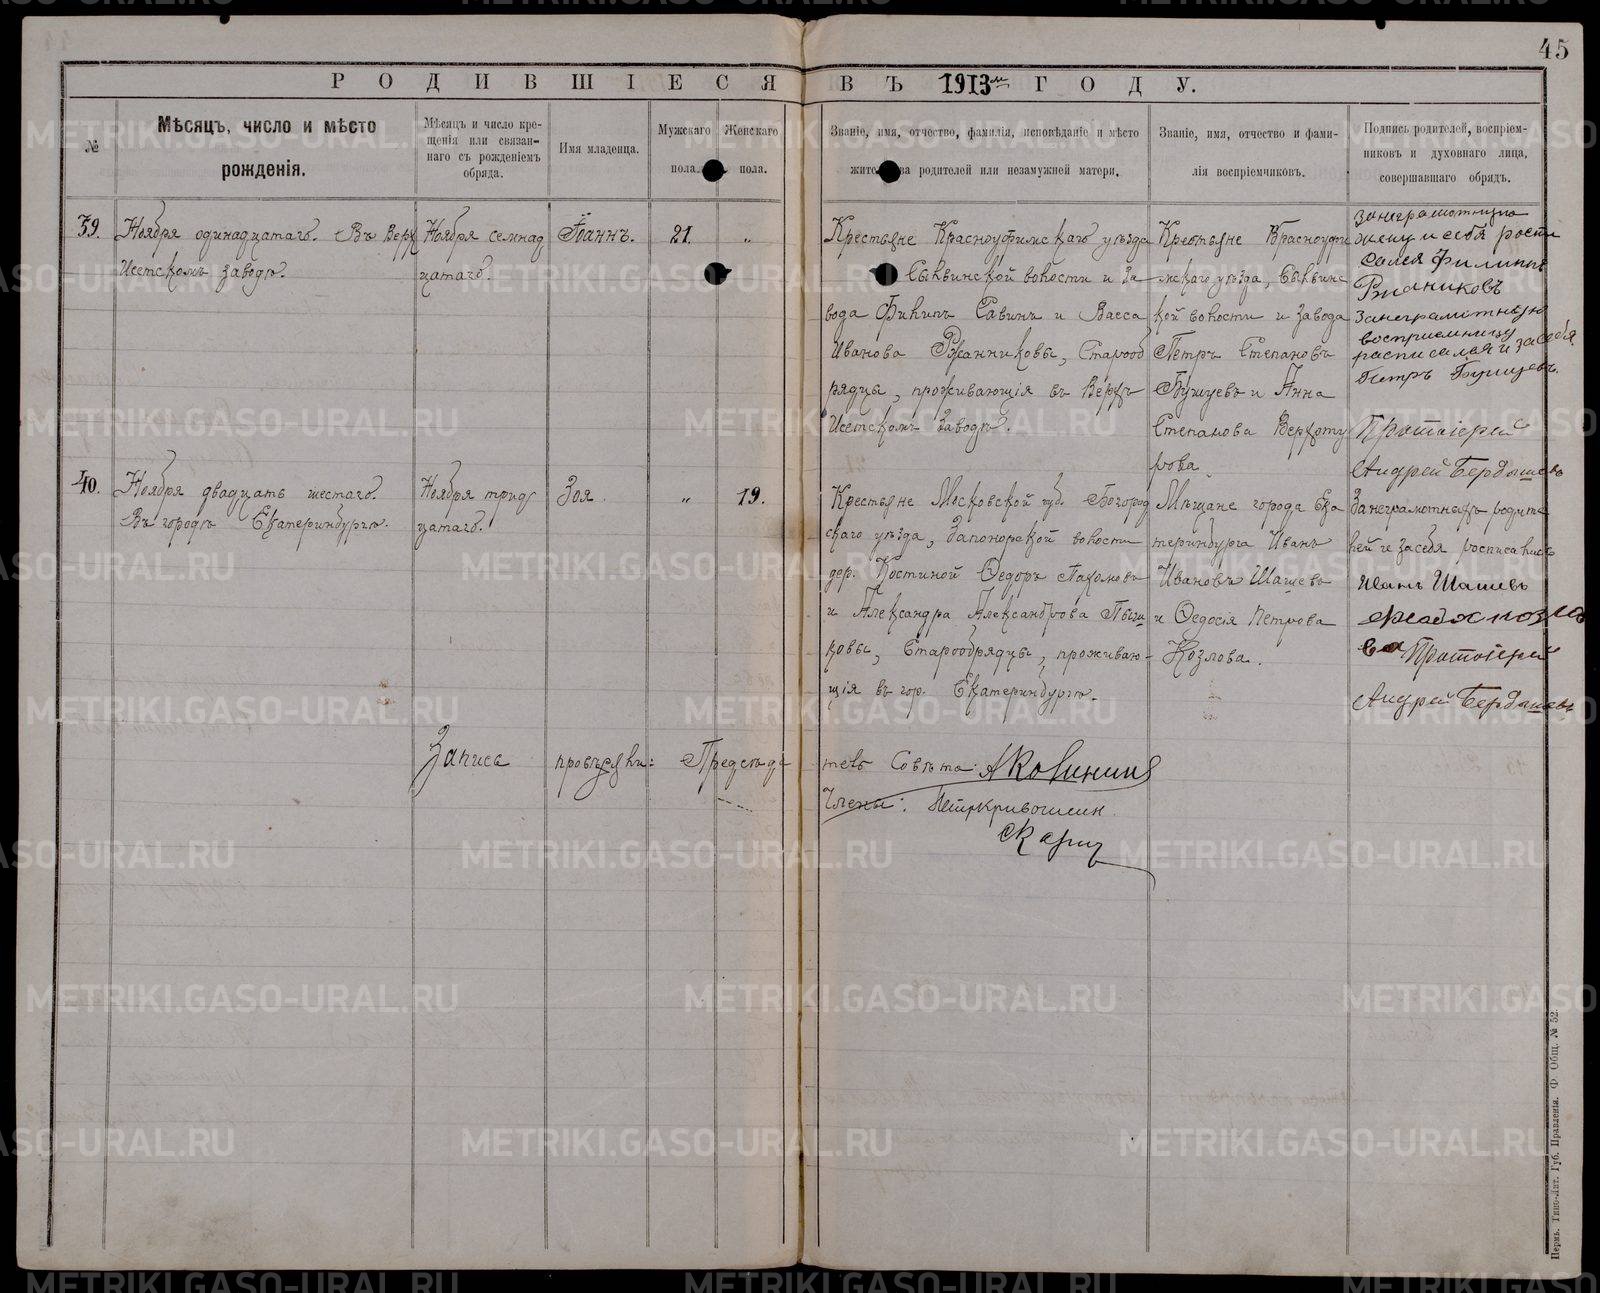 45
РОДИВШІЕСЯ ВЪ 1913 м ГОДУ.
№
Мѣсяцъ, число и мѣсто
рожденія.
Мѣсяцъ и число кре-
щенія или связан-
наго съ рожденіемъ
обряда.
Имя младенца.
Мужскаго
пола.
Женскаго
пола.
Званіе, имя, отчество, фамилія, исповѣданіе и мѣсто
жительства родителей или незамужней матери.
Званіе, имя, отчество и фами-
лія воспріемчиковъ.
Подпись родителей, воспріем-
никовъ и духовнаго лица,
совершавшаго обрядъ.
39.
Ноября одинадцатаго. Въ Верх
Исетскомъ заводѣ.
Ноября семнад
цатаго.
Іоаннъ.
21.
„
Крестьяне Красноуфимскаго уѣзда
Сылвинской волости и за
вода Филипъ Савинъ и Васса
Иванова Ржанниковы, Старооб
рядцы, проживающія въ Верхъ
Исетскомъ Заводѣ.
Крестьяне Красноуфи
мскаго уѣзда, Сылвинс
кой волости и завода
Петръ Степановъ
Бушуевъ и Анна
Степанова Верхоту
рова.
занеграмотную
жену и себя роспи
сался Филипъ
Ржаниковъ
Занеграмотную
восприемницу
росписался и за себя
Петръ Бушуевъ.
Протоіерей
Андрей Бердышевъ
40.
Ноября двадцать шестаго.
Въ городѣ Екатеринбургѣ.
Ноября трид
цатаго.
Зоя.
„
19.
Крестьяне Московской губ. Богород
скаго уѣзда, Запонорской волости
дер. Костиной Ѳедоръ Пахомовъ
и Александра Александрова Пыш
ковы, Старообрядцы, проживаю-
щія въ гор. Екатеринбургѣ.
Мѣщане города Ека
теринбурга Иванъ
Ивановъ Шашевъ
и Ѳедосія Петрова
Козлова.
Занеграмотныхъ родите
лей и засебя росписались
Иванъ Шашевъ
козло
ва Протоіерей
Андрей Бердышевъ
Запись провѣряли: Предсѣда
тель Совѣта:
Члены:
Пермь. Типо-Лит. Губ. Правленія. Ф. Общ. № 52.
METRIKI.GASO-URAL.RU